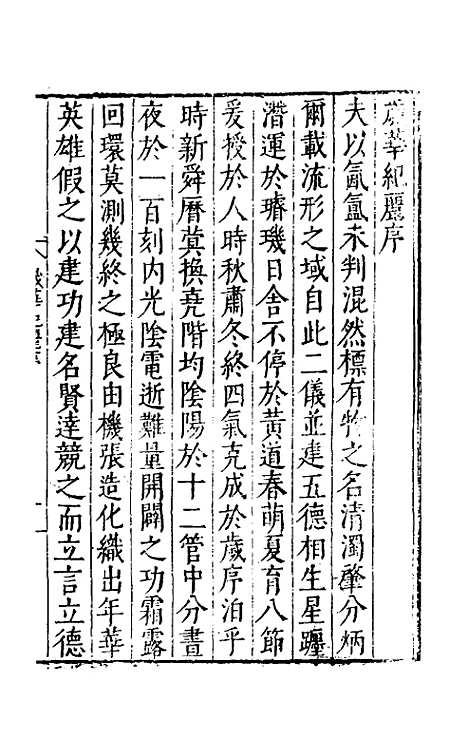 歲華紀麗序
夫以氤氳未判混然標有物之名清濁肇分炳
爾載流形之域自此二儀並建五德相生星躔
潛運於璿璣日舎不停於黄道春萌夏育八節
爰授於人時秋肅冬終四氣克成於歲序洎乎
時新舜曆蓂換堯階均陰陽於十二管中分晝
夜於一百刻内光陰電逝難量開闢之功霜露
回環莫測幾終之極良由機張造化織出年華
英雄假之以建功建名賢達競之而立言立德
歲華紀麗序
一